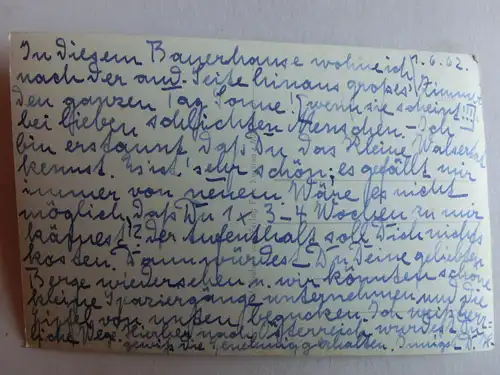 In diesem Bauerhause wohne ich 1.6.62.
nach der and. Seite hinaus großes Zimmer
den ganzen Tag Sonne! (wenn sie scheint!!!)
bei lieben schlichten Menschen. - Ich
bin erstaunt daß Du das kleine Walsertal
kennst. Es ist sehr schön; es gefällt mir
immer von neuem. Wäre es nicht
möglich, daß Du 1x 3-4 Wochen zu mir
kämest!? der Aufenthalt soll Dich nichts
kosten. Dann würdest Du Deine geliebten
Berge wiedersehen u. wir könnten schöne
kleine Spaziergänge unternehmen und die
Gipfel von unten begucken. Ich weiß
Weg. Hierher nach Österreich würdest Du
gewiß die Genehmigung erhalten. Innigst